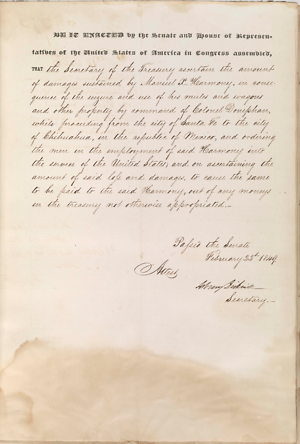 BE IT ENACTED by the Senate and House of Represen-
tatives of the United States of America in Congress assembled,
THAT the Secretary of the Treasury ascertain the amount
of damages sustained by Manuel X. Harmony, in conse-
quence of the seizure and use of his mules and wagons
and other property by command of Colonel Doniphan,
while proceeding from the city of Santa Fé to the city
of Chihuahua, in the republic of Mexico, and ordering
the men in the employment of said Harmony into
the service of the United States; and on ascertaining the
amount of said loss and damage, to cause the same
to be paid to the said Harmony, out of any moneys
in the treasury not otherwise appropriated.—
Passed the Senate
February 23d 1849
Attest
Secretary.—